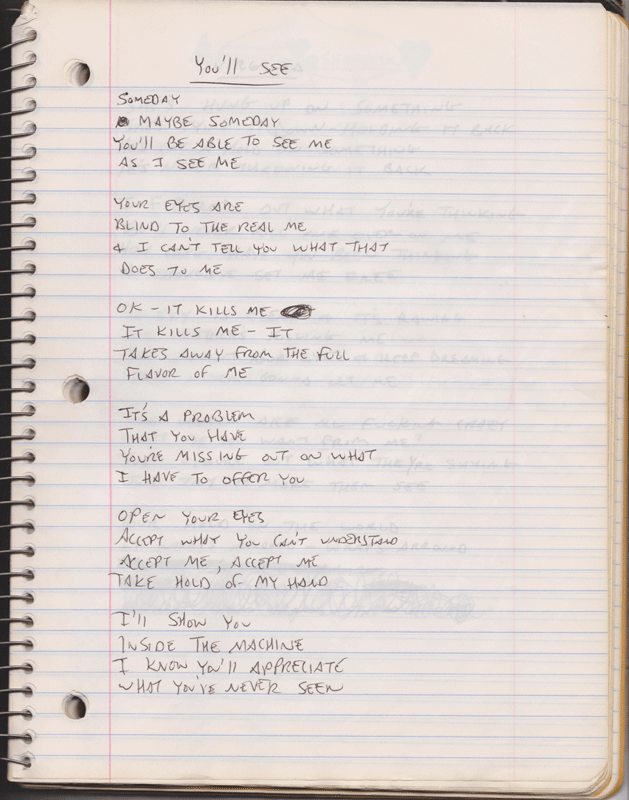 You'll SEE
SOMEDAY
MAYBE SOMEDAY
YOU'll BE ABLE TO SEE ME
AS I SEE ME
YOUR EYES ARE
BLIND TO THE REAL ME
& I CAN'T TELL YOU WHAT THAT
DOES TO ME
OK - IT KILLS ME
IT KILLS ME - IT
TAKES AWAY FROM THE FULL
FLAVOR OF ME
IT'S A PROBLEM
THAT YOU HAVE
YOU'RE MISSING OUT ON WHAT
I HAVE TO OFFER YOU
OPEN YOUR EYES
ACCEPT WHAT YOU CAN'T UNDERSTAND
ACCEPT ME, ACCEPT ME
TAKE HOLD OF MY HAND
I'll SHOW YOU
INSIDE THE MACHINE
I KNOW YOU'll APPRECIATE
WHAT YOU'VE NEVER SEEN